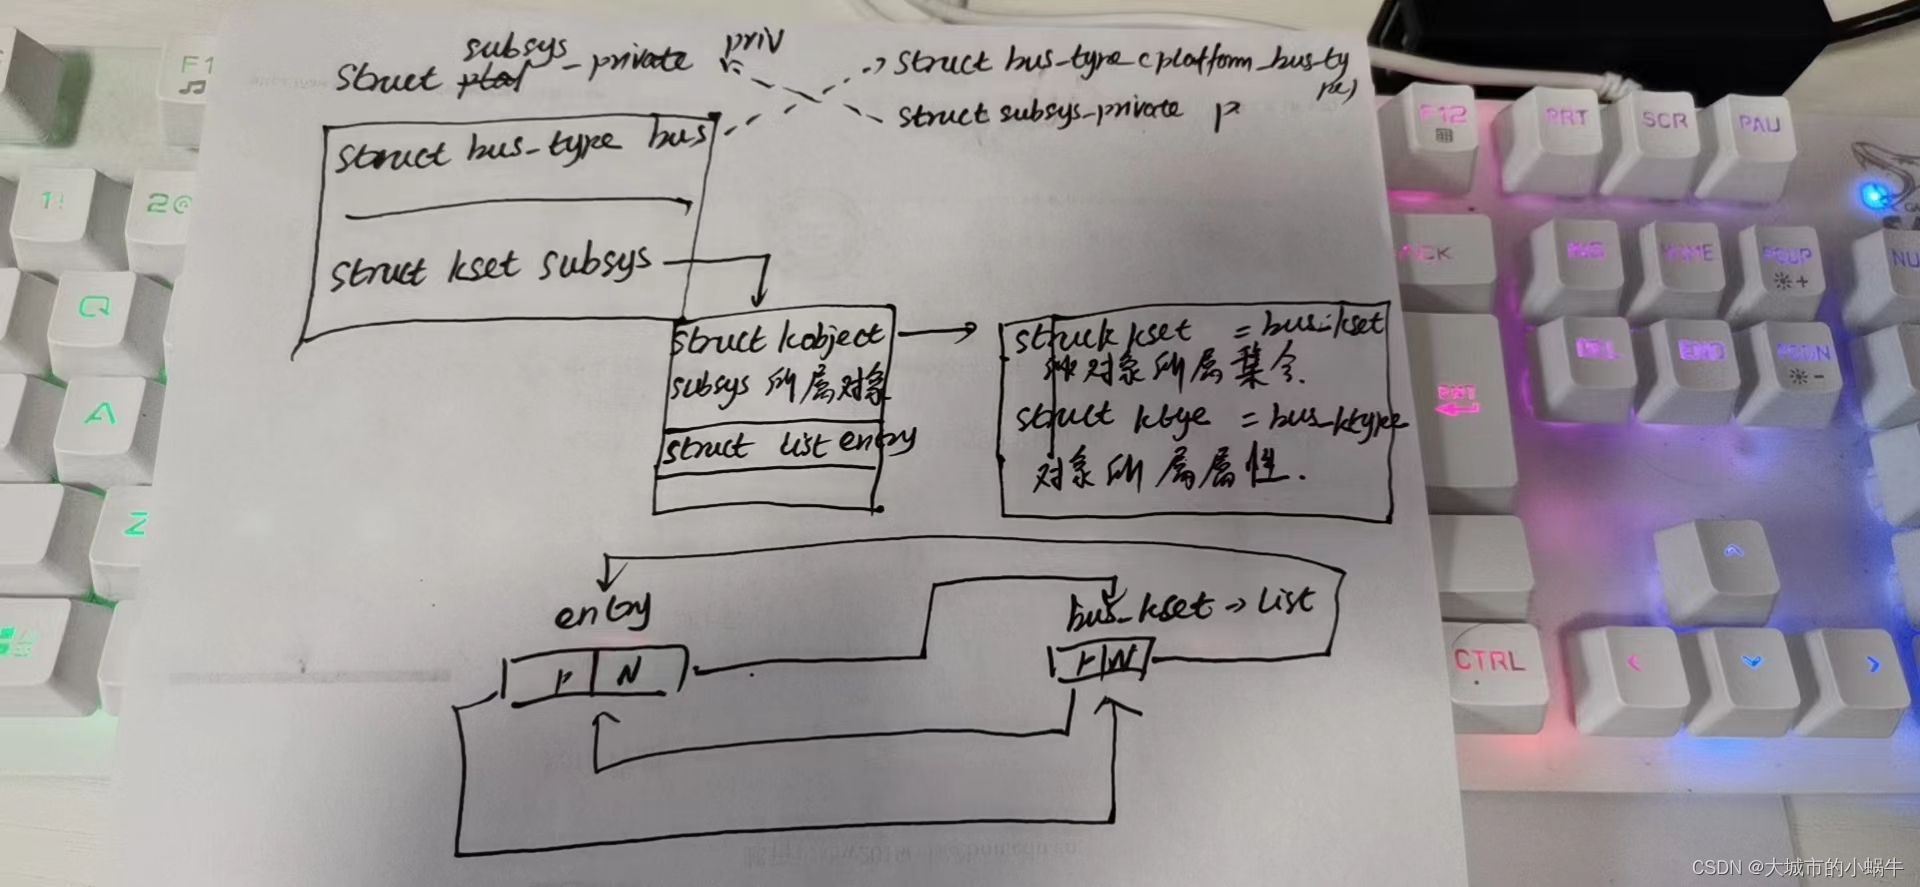 subsys
struct _private
priv
struct bus_type bus
struct kset subsys
struct bus_tyre_cplatform_bus_ty
pe)
struct subsys_private p
struct kobject
subsys 所属对象
struct list entry
struck kset = bus_kset
对象所属集合.
struct ktye = bus_ktype
对象所属属性.
entry
P N
bus_kset → list
P N
F1
1!
2@
Q
A
Z
F12
PRT
SCR
PAU
INS
HOME
PGUP
DEL
END
PGDN
ENT
CTRL
NU
CSDN @大城市的小蜗牛